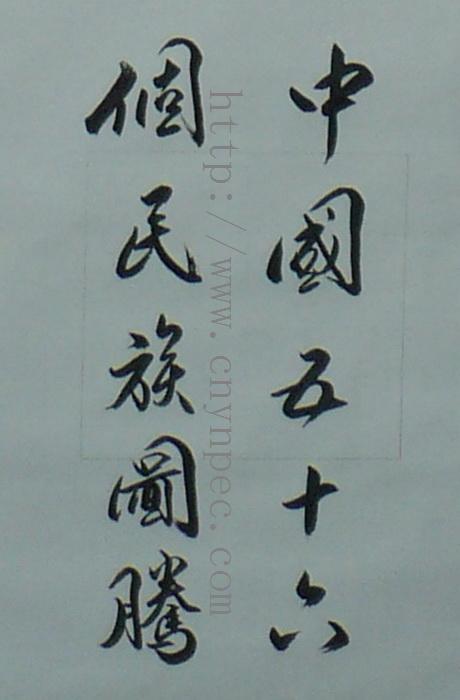 中國五十六
個民族圖騰
http://www.cnynpec.com